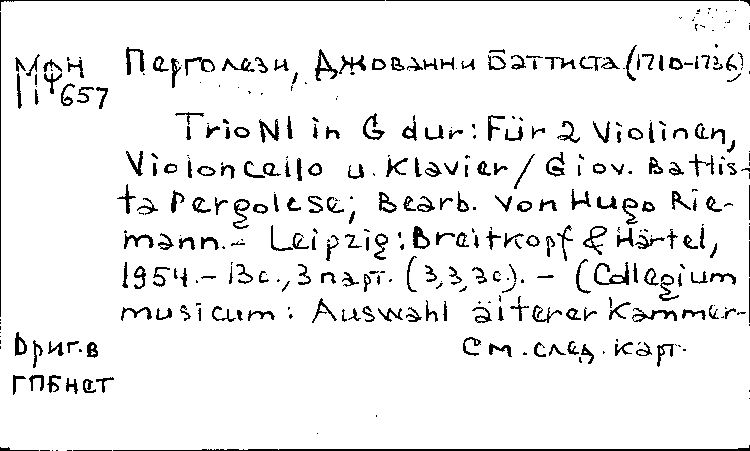 МФН Перголези, Джованни Баттиста (1710-1736)
П 657
Trio N1 in G dur: Für 2 Violinen,
Violoncello u. Klavier / Giov. Battis-
ta Pergolese; Bearb. von Hugo Rie-
mann. - Leipzig: Breitkopf & Härtel,
1954. - 13 с., 3 парт. (3,3,3с.). - (Collegium
musicum: Auswahl älterer Kammer-
Ориг. в См. след. карт.
ГПБ нет